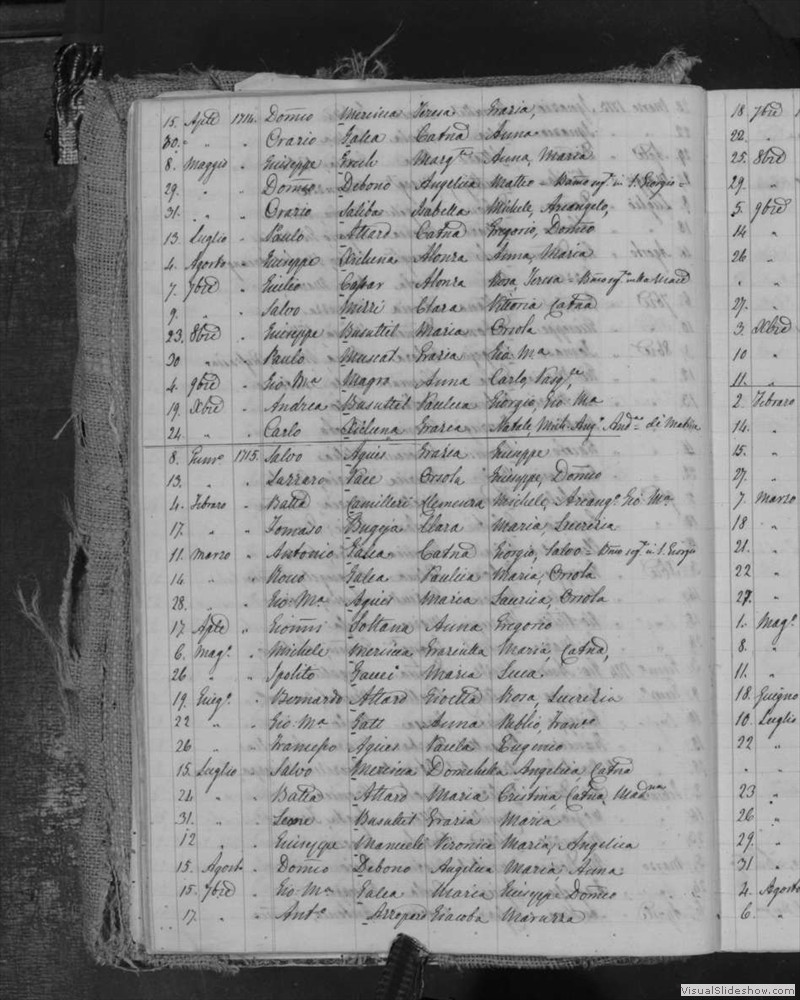 15. Aple 1714. Domco Mercieca Teresa Grazia,
30. " " Orazio Galea Catna Anna
8. Maggio " Giuseppe Ereli Margta Anna, Maria
29. " " Domco Debono Angelica Matteo - Bmo segl in S. Giorgio -
31. " " Orazio Saliba Isabella Michele, Arcangelo,
13. Luglio " Paulo Attard Catna Gregorio, Domco
4. Agosto " Giuseppe Xicluna Alonza Anna, Maria
7. 7bre " Giulio Caspar Alonza Rosa, Teresa -
9. " " Salvo Mizzi Clara Vittoria Catna
23. 8bre " Giuseppe Busuttil Maria Orsola
30 " " Paulo Muscat Grazia Gio Ma
4. 9bre " Gio Ma Magro Anna Carlo, Pasqle,
19. Xbre " Andrea Busuttil Paulica Giorgio, Gio Ma
24. " " Carlo Xicluna Grazia Natale, Mich: Ango Andra di Mattia
8. Genno 1715. Salvo Agius Grazia Giuseppe
13. " " Lazzaro Pace Orsola Giuseppe, Domco
4. Febraro " Batta Camilleri Clemenza Michele, Arcango Gio Ma
17. " " Tomaso Bugeja Clara Maria, Lucrezia
11. Marzo " Antonio Galea Catna Giorgio, Salvo - Bmo segl in S. Giorgio
14 " " Rocco Galea Paulica Maria, Orsola
28. " " Gio Ma Agius Maria Laurica, Orsola
17 Aple " Gionni Soltana Anna Gregorio
6. Mago " Michele Mercieca Graziulla Maria, Catna,
26 " " Ipolito Gauci Maria Luca
19. Giugo " Bernardo Attard Gioetta Rosa, Lucrezia
22 " " Gio Ma Gatt Anna Publio, Franco
26 " " Francesco Agius Paula Eugenio
15. Luglio " Salvo Mercieca Domenica Angelica, Catna
24 " " Batta Attard Maria Cristina, Catna, Madna
31. " " Leone Busuttil Grazia Maria
12 " " Giuseppe Mamueli Vironica Maria, Angelica
15. Agosto " Domco Debono Angelica Maria Anna
15. 7bre " Gio Ma Galea Maria Giuseppe Domco
17. " " Anto Azzopard Giacoba Maruzza
18 7bre
22. "
25. 8bre
29. "
5. 9bre
14 "
26 "
" "
27. "
3. Xbre
10 "
11. "
2. Febraro
14. "
15. "
27. "
7. Marzo
18 "
21. "
22 "
27. "
1. Mago
8. "
11. "
18. Giugno
10. Luglio
22 "
" "
23 "
26 "
29. "
31 "
4. Agosto
6. "
VisualSlideshow.com